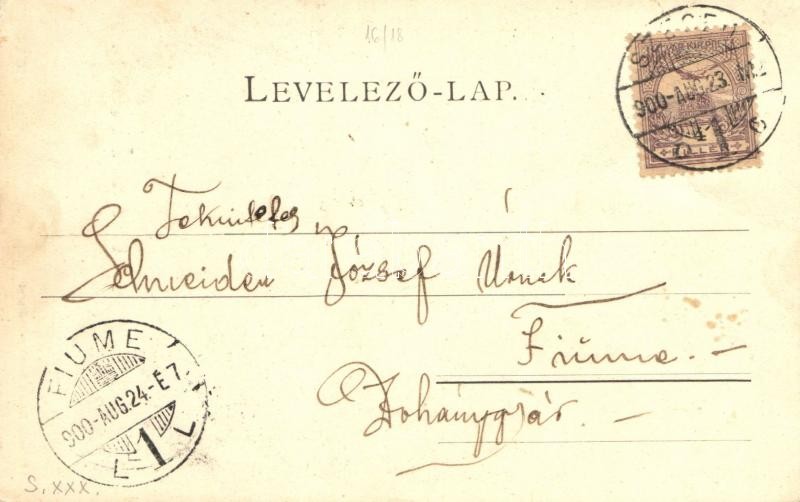 16/18
LEVELEZŐ-LAP.
900-AUG.23.
1
Tekintetes
Schneider József Úrnak
Fiúme.-
Dohánygyár.-
FIUME
900-AUG.24.-É7.
1
S. xxx.